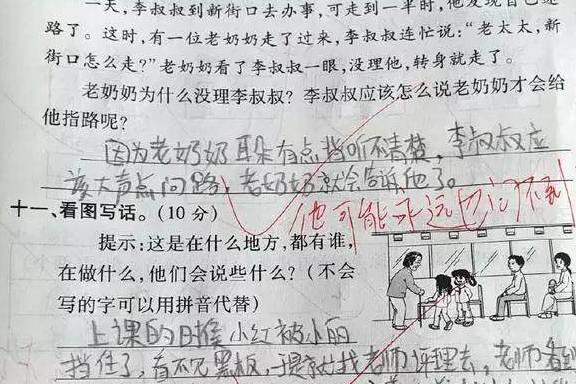 一天,李叔叔到新街口去办事,可走到一半时,他发现自己迷
路了。这时,有一位老奶奶走了过来,李叔叔连忙说:“老太太,新
街口怎么走?”老奶奶看了李叔叔一眼,没理他,转身就走了。
老奶奶为什么没理李叔叔?李叔叔应该怎么说老奶奶才会给
他指路呢?
因为老奶奶耳朵有点挡听不清楚,李叔叔应
该大声点问路,老奶奶就会告诉他了。
他可能永远也问不到
十一、看图写话。(10分)
提示:这是在什么地方,都有谁,
在做什么,他们会说些什么?(不会
写的字可以用拼音代替)
上课的时候小红被小丽
挡住了,看不见黑板,于是就找老师评理去,老师看到